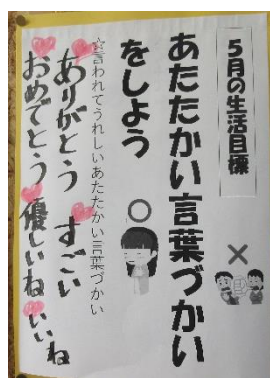 5月の生活目標
あたたかい言葉づかい
をしよう
☆言われてうれしいあたたかい言葉づかい
ありがとう すごい
おめでとう 優しいね いいね